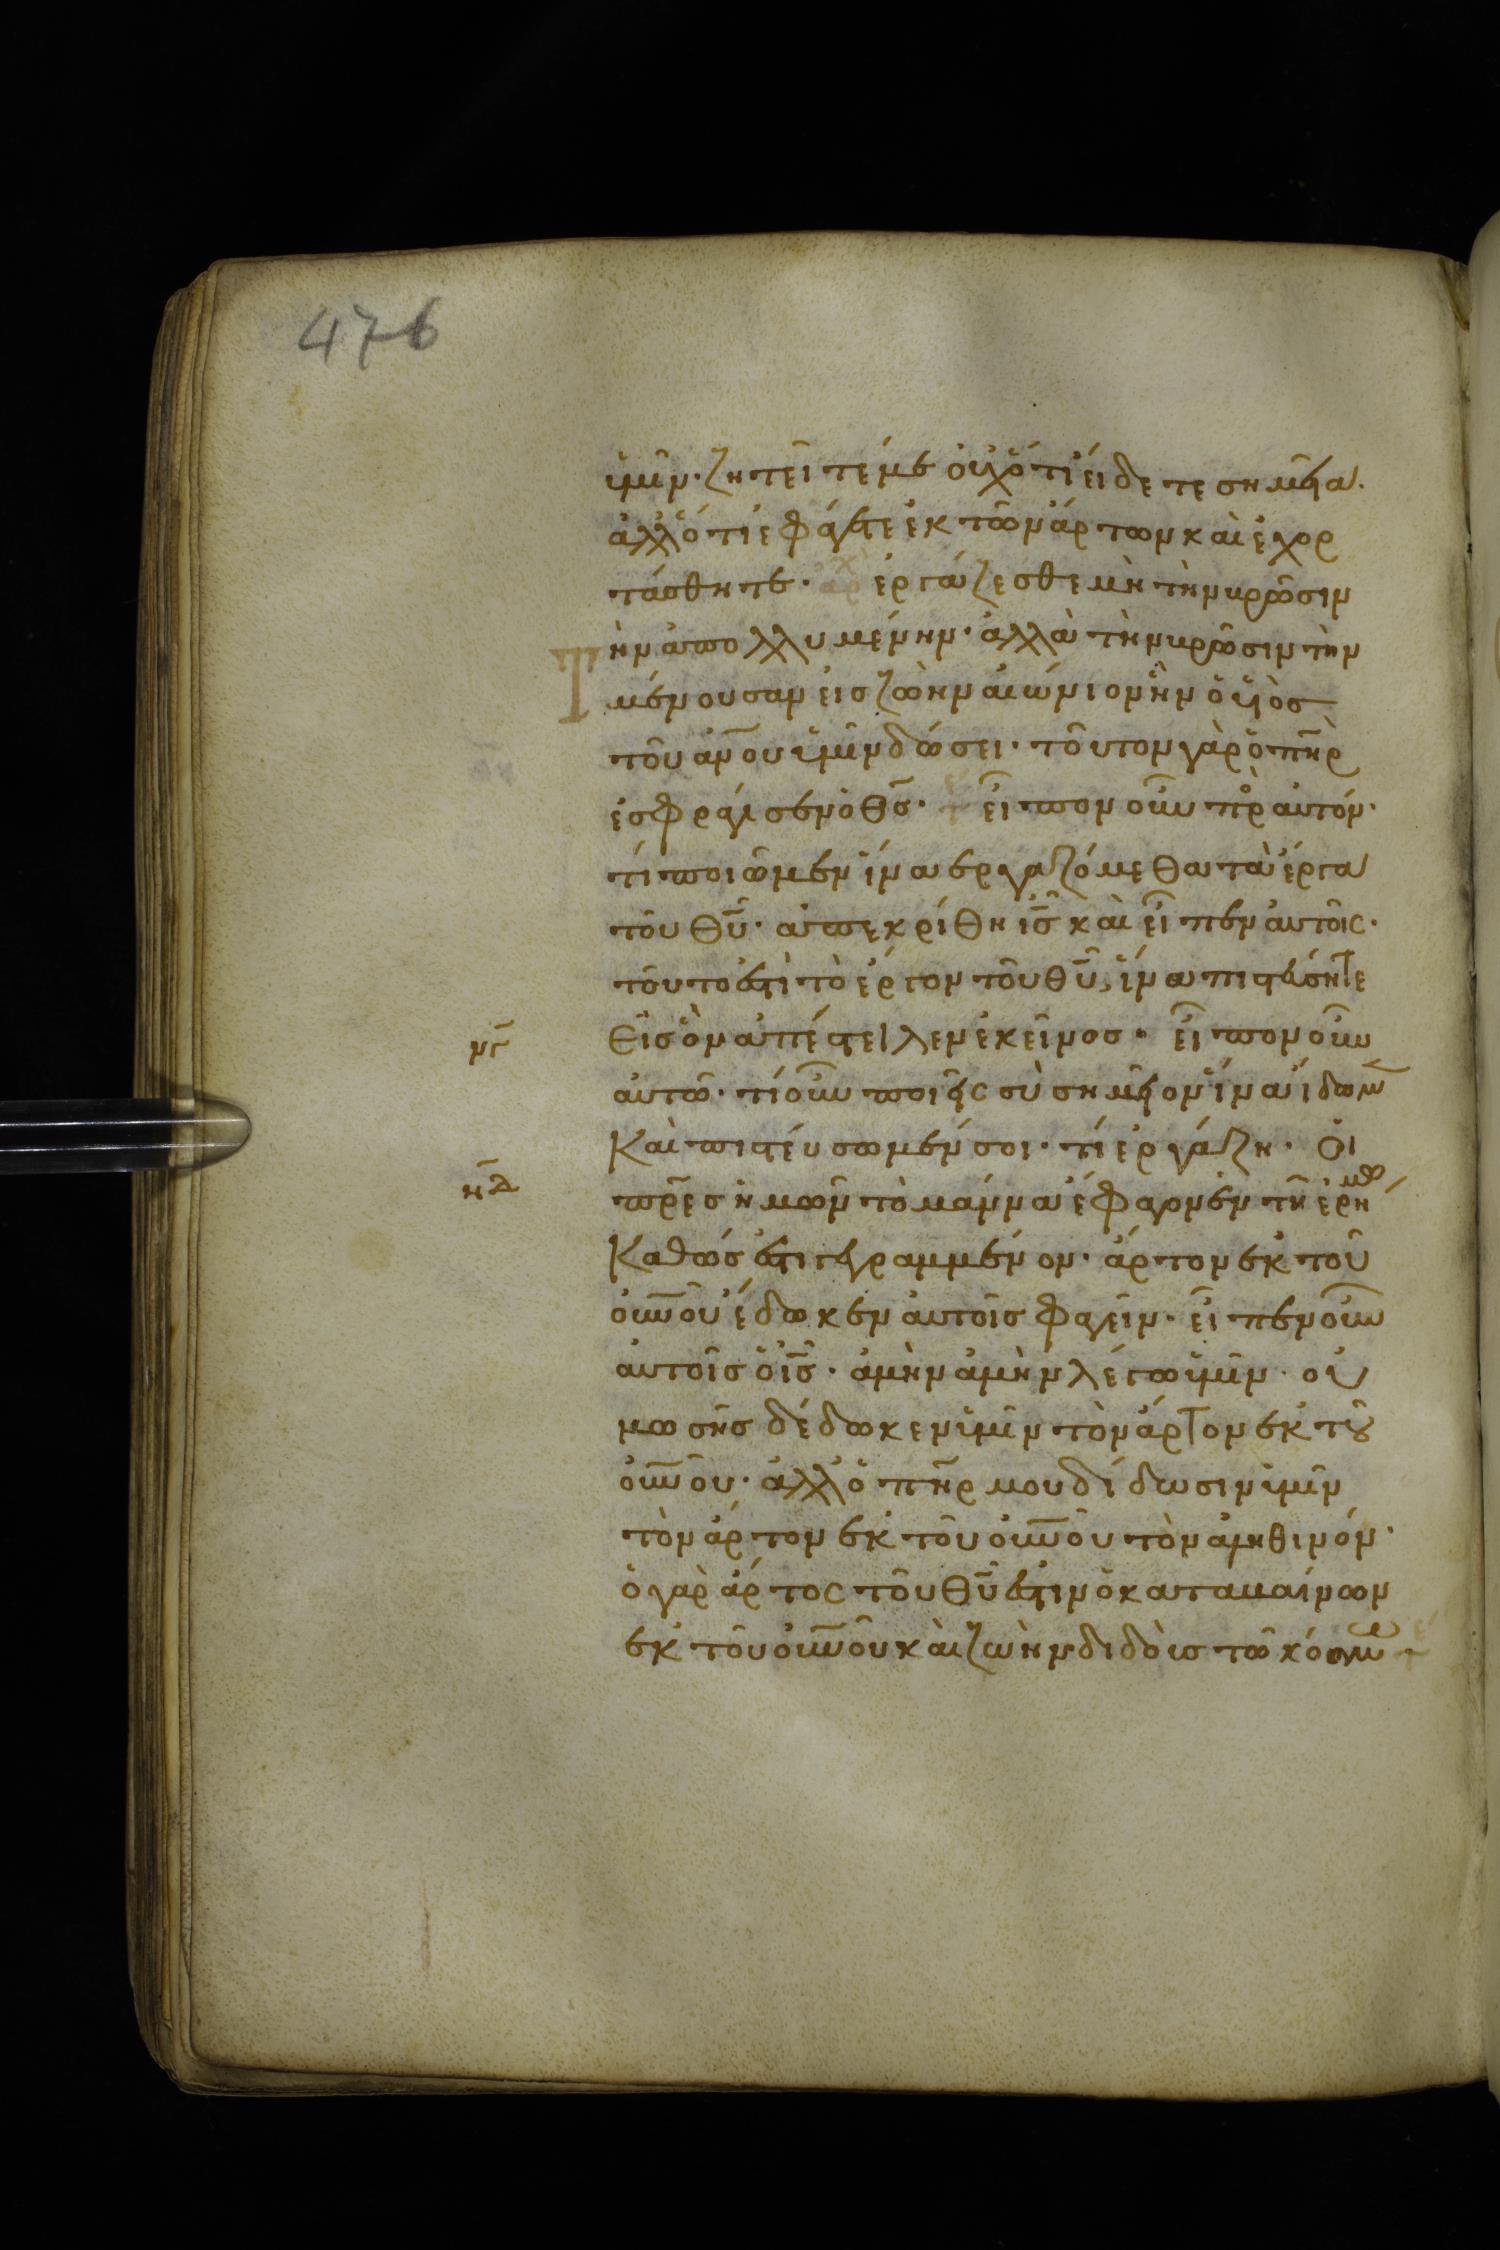 476
ὑμῖν· ζητεῖτέ με οὐχ ὅτι εἴδετε σημεῖα·
ἀλλ' ὅτι ἐφάγετε ἐκ τῶν ἄρτων καὶ ἐχορ
τάσθητε· ἐργάζεσθε μὴ τὴν βρῶσιν
τὴν ἀπολλυμένην· ἀλλὰ τὴν βρῶσιν τὴν
μένουσαν εἰς ζωὴν αἰώνιον ἣν ὁ υἱὸς
τοῦ ἀν̅ου ὑμῖν δώσει· τοῦτον γὰρ ὁ πη̅ρ
ἐσφράγισεν ὁ θ̅ς· εἶπον οὖν πρ αὐτόν·
τί ποιῶμεν ἵνα ἐργαζόμεθα τὰ ἔργα
τοῦ θ̅υ· ἀπεκρίθη ι̅ς καὶ εἶπεν αὐτοῖς·
τοῦτό ἐστι τὸ ἔργον τοῦ θ̅υ, ἵνα πιστεύσητε
εἰς ὃν ἀπέστειλεν ἐκεῖνος· εἶπον οὖν
αὐτῷ· τί οὖν ποιεῖς σὺ σημεῖον ἵνα ἴδωμ
καὶ πιστεύσωμέν σοι· τί ἐργάζῃ· οἱ
πρ̅ες ἡμῶν τὸ μάννα ἔφαγον ἐν τῇ ἐρήμῳ
καθώς ἐστι γεγραμμένον· ἄρτον ἐκ τοῦ
οὐ̅νοῦ ἔδωκεν αὐτοῖς φαγεῖν· εἶπεν οὖν
αὐτοῖς ὁ ι̅ς· ἀμὴν ἀμὴν λέγω ὑμῖν· οὐ
μωσῆς δέδωκεν ὑμῖν τὸν ἄρτον ἐκ τοῦ
οὐ̅νοῦ· ἀλλ' ὁ πη̅ρ μου δίδωσιν ὑμῖν
τὸν ἄρτον ἐκ τοῦ οὐ̅νοῦ τὸν ἀληθινόν·
ὁ γὰρ ἄρτος τοῦ θ̅υ ἐστιν ὁ καταβαίνων
ἐκ τοῦ οὐ̅νοῦ καὶ ζωὴν διδοὺς τῷ κόσμῳ